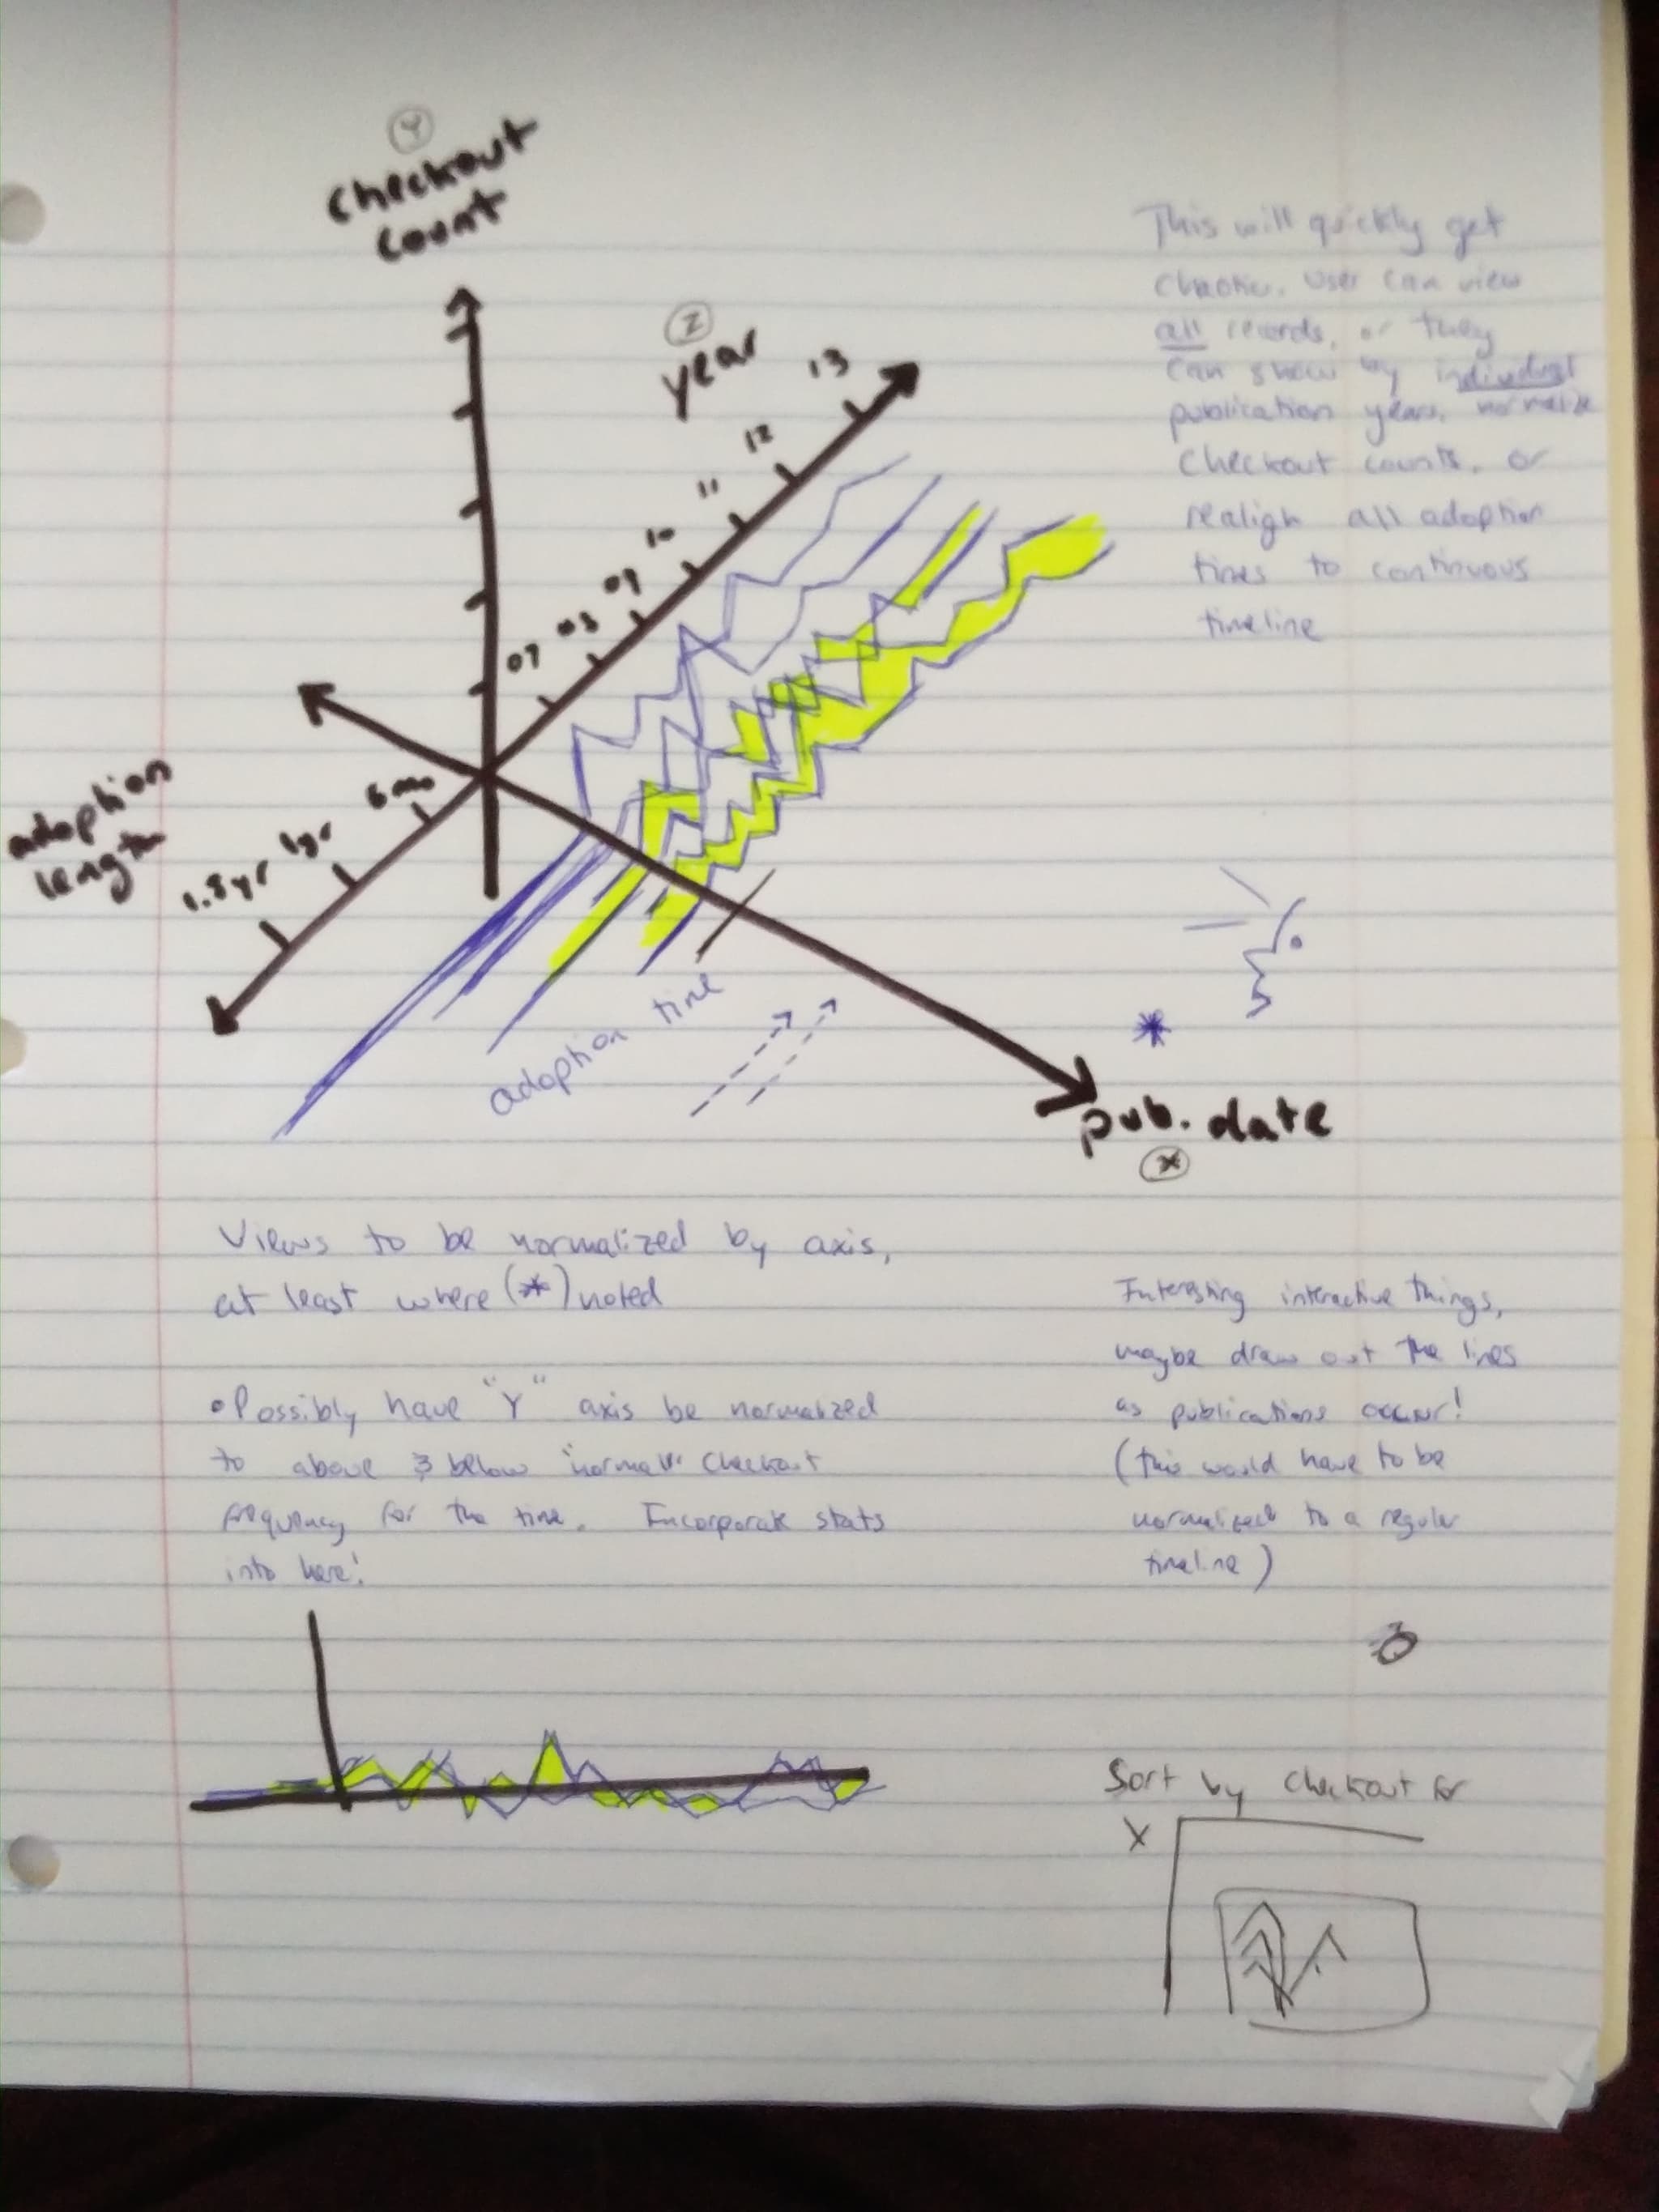 Y
checkout
count
Z
year
13
12
11
10
09
08
07
This will quickly get
chaotic. User can view
all records, or they
can show by individual
publication years, normalize
checkout counts, or
realign all adoption
times to continuous
timeline
adoption
length
6mo
1yr
1.5yr
adoption time
*
pub. date
X
Views to be normalized by axis,
at least where (*) noted
• Possibly have "Y" axis be normalized
to above & below "normal" checkout
frequency for the time. Incorporate stats
into here!
Interesting interactive things,
maybe draw out the lines
as publications occur!
(this would have to be
normalized to a regular
timeline)
Sort by checkout for
X